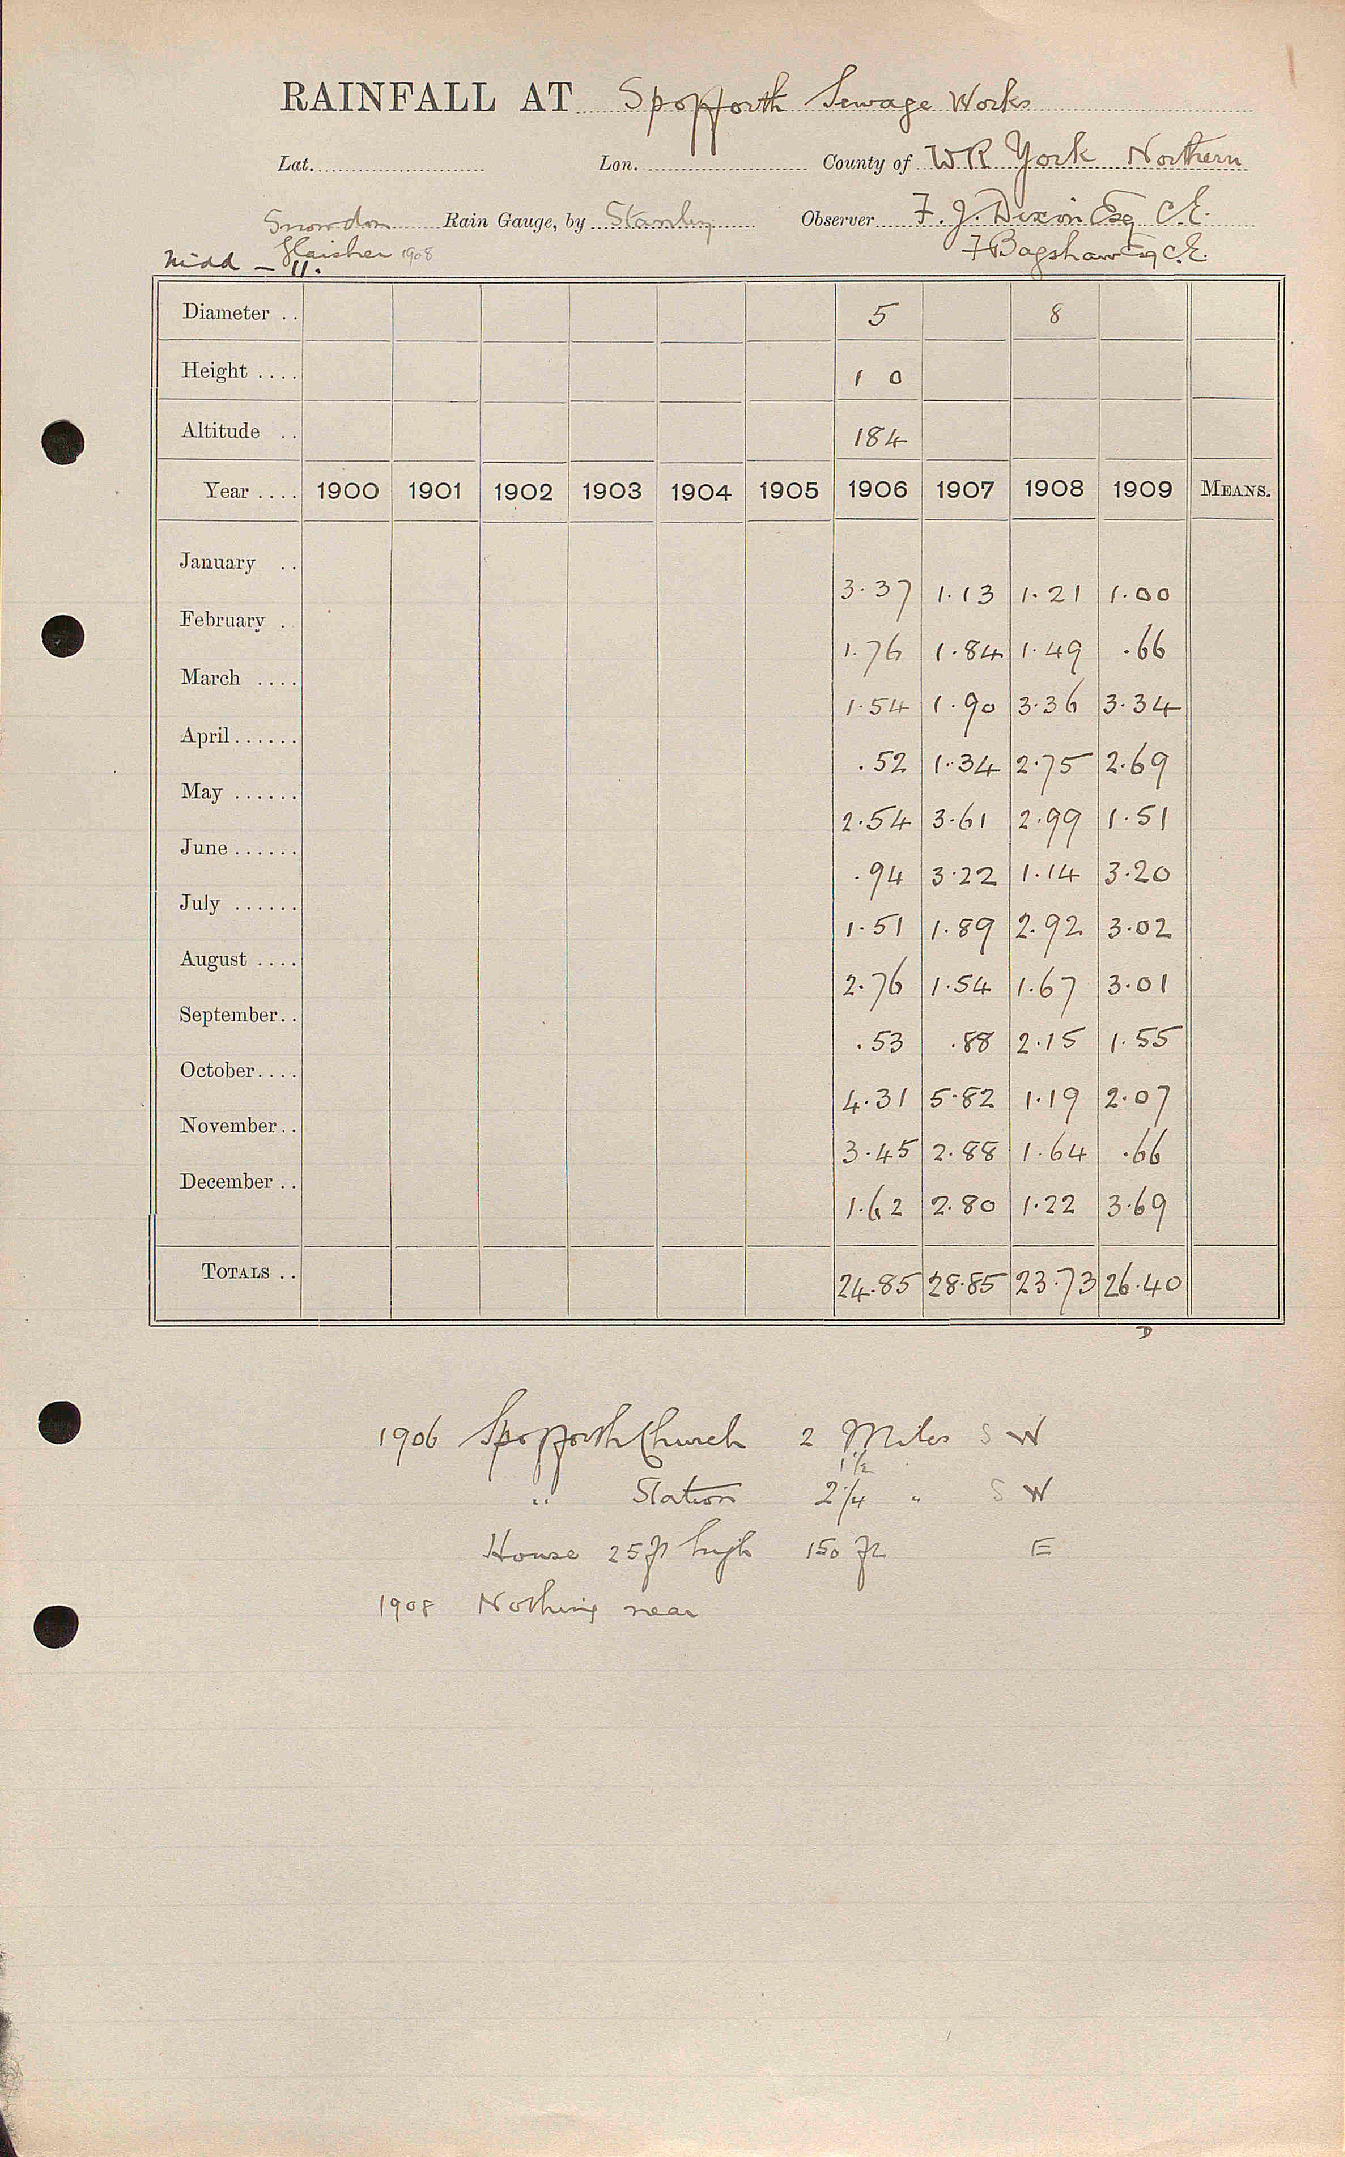 RAINFALL AT Spofforth Sewage Works
Lat. Lon. County of WR York Northern
Snowdon Rain Gauge, by Stanley Observer F. J. Dixon Esq C.E.
Nidd – 11. Glaisher 1908 F Bagshaw Esq C.E.
Diameter .. 5 8
Height .... 1 0
Altitude .. 184
Year .... 1900 1901 1902 1903 1904 1905 1906 1907 1908 1909 MEANS.
January .. 3.37 1.13 1.21 1.00
February .. 1.76 1.84 1.49 .66
March .... 1.54 1.90 3.36 3.34
April ...... .52 1.34 2.75 2.69
May ...... 2.54 3.61 2.99 1.51
June ...... .94 3.22 1.14 3.20
July ...... 1.51 1.89 2.92 3.02
August .... 2.76 1.54 1.67 3.01
September .. .53 .88 2.15 1.55
October .... 4.31 5.82 1.19 2.07
November .. 3.45 2.88 1.64 .66
December .. 1.62 2.80 1.22 3.69
TOTALS .. 24.85 28.85 23.73 26.40
D
1906 Spofforth Church 2 Miles S W
1½
" Station 2¼ " S W
House 25 ft high 150 ft E
1908 Nothing near